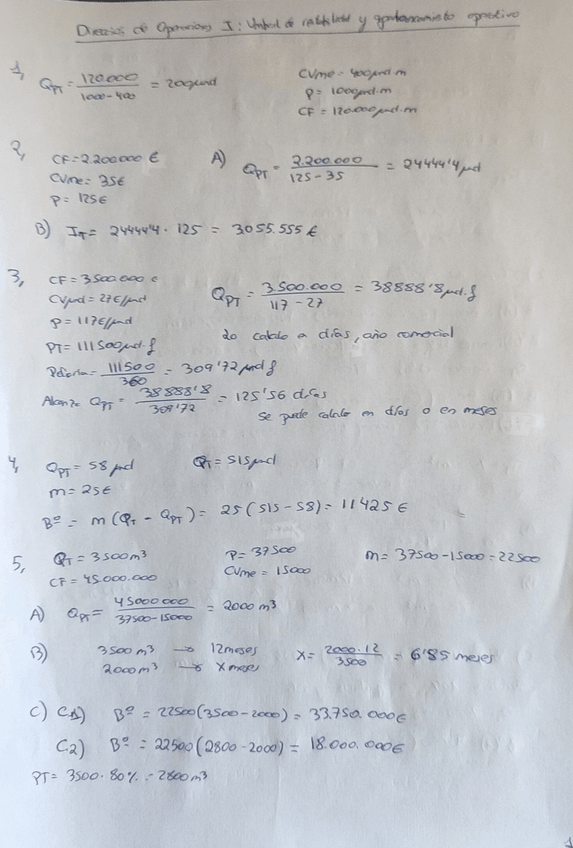 Dirección de Operaciones I: Umbral de rentabilidad y apalancamiento operativo
1, QPT = 120.000 / 1000-400 = 200 und
CVme = 400 €/und.m
P = 1000 €/und.m
CF = 120.000 €/und.m
2, CF = 2.200.000 €
CVme = 35€
P = 125€
A) QPT = 2.200.000 / 125-35 = 24444'4 und
B) IT = 24444'4 · 125 = 3.055.555 €
3, CF = 3.500.000 €
CVud = 27€/und
P = 117€/und
PT = 111500 ud.f
QPT = 3.500.000 / 117-27 = 38888'8 ud.f
lo calculo a días, año comercial
= 111500 / 360 = 309'72 und f
Alcanza QPT = 38888'8 / 309'72 = 125'56 días
Se puede calcular en días o en meses
4, QPT = 58 und
QT = 515 und
m = 25€
Bº = m (QT - QPT) = 25 (515 - 58) = 11425 €
5, QT = 3500 m³
CF = 45.000.000
P = 37500
CVme = 15000
m = 37500 - 15000 = 22500
A) QPT = 45000000 / 37500-15000 = 2000 m³
B) 3500 m³ → 12 meses
2000 m³ → x meses
X = 2000·12 / 3500 = 6'85 meses
C) C1) Bº = 22500 (3500 - 2000) = 33.750.000€
C2) Bº = 22500 (2800 - 2000) = 18.000.000€
PT = 3500 · 80% = 2800 m³